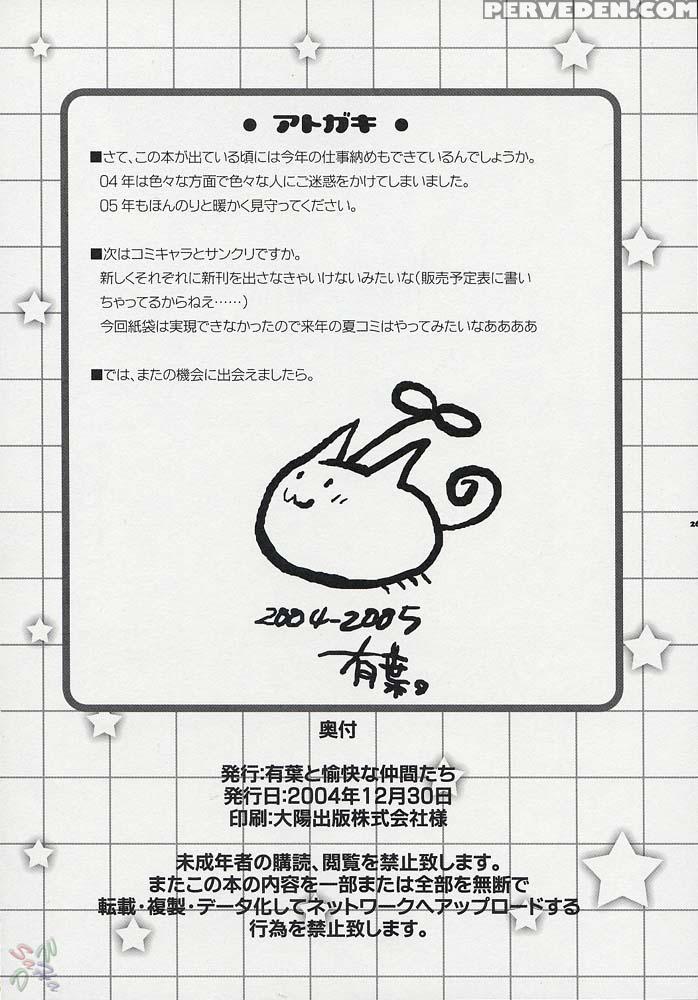 PERVEDEN.COM
● アトガキ ●
■さて、この本が出ている頃には今年の仕事納めもできているんでしょうか。
04年は色々な方面で色々な人にご迷惑をかけてしまいました。
05年もほんのりと暖かく見守ってください。
■次はコミキャラとサンクリですか。
新しくそれぞれに新刊を出さなきゃいけないみたいな(販売予定表に書い
ちゃってるからねえ……)
今回紙袋は実現できなかったので来年の夏コミはやってみたいなああああ
■では、またの機会に出会えましたら。
2004-2005
有葉。
26
奥付
発行:有葉と愉快な仲間たち
発行日:2004年12月30日
印刷:大陽出版株式会社様
未成年者の購読、閲覧を禁止致します。
またこの本の内容を一部または全部を無断で
転載・複製・データ化してネットワークへアップロードする
行為を禁止致します。